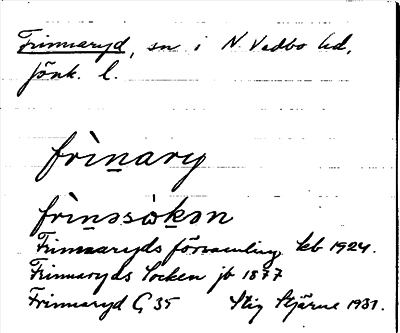 Frinnaryd, sn i N. Vedbo hd,
Jönk. l.
frìnary
frìnssòkən
Frinnaryds församling kb 1924.
Frinnaryds Socken jb 1877
Frinnaryd G 35 Stig Stjärne 1931.